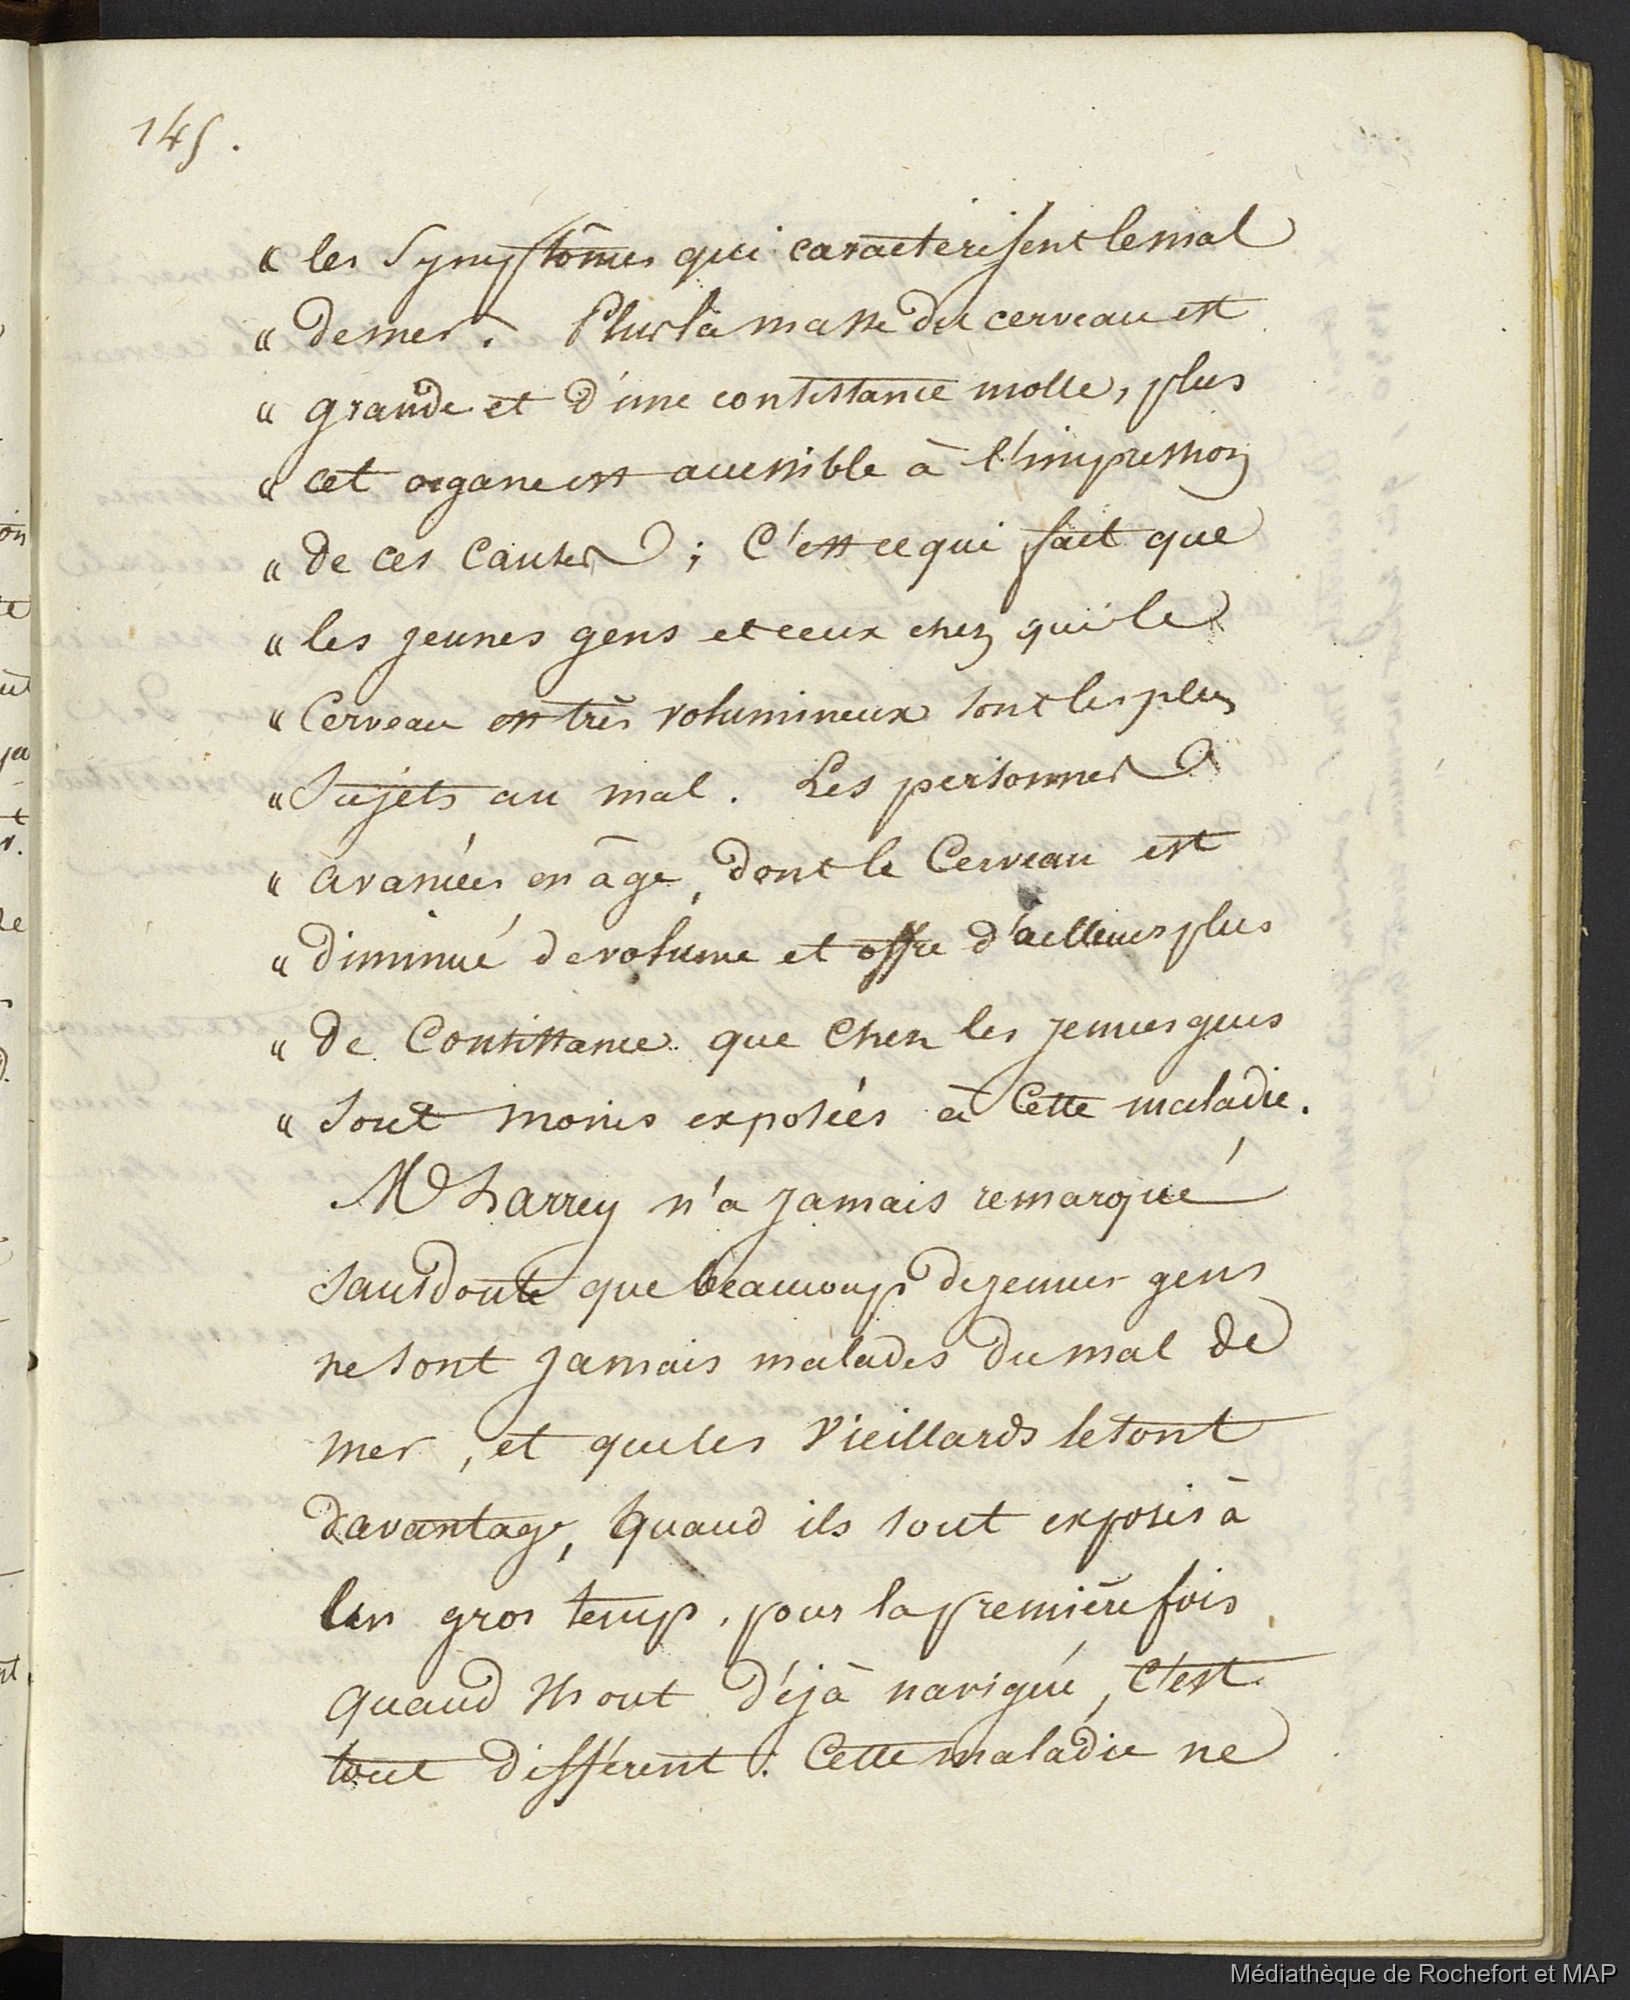 145.
« les Symptômes qui caracterisent le mal
« de mer. Plus la masse du cerveau est
« grande et d'une consistance molle, plus
« cet organe est accessible à l'impression
« de ces causes ; C'est ce qui fait que
« les jeunes gens et ceux chez qui le
« Cerveau est très volumineux sont les plus
« Sujets au mal. Les personnes
« avancées en âge, dont le Cerveau est
« diminué de volume et offre d'ailleurs plus
« de Consistance que chez les jeunes gens
« sont moins exposées à Cette maladie.
Mr Larrey n'a jamais remarqué
sans doute que beaucoup de jeunes gens
ne sont jamais malades du mal de
mer, et que les Vieillards le sont
davantage, quand ils sont exposés à
un gros temps, pour la première fois
quand ils ont déjà navigué, C'est
tout différent. Cette maladie ne
Médiathèque de Rochefort et MAP